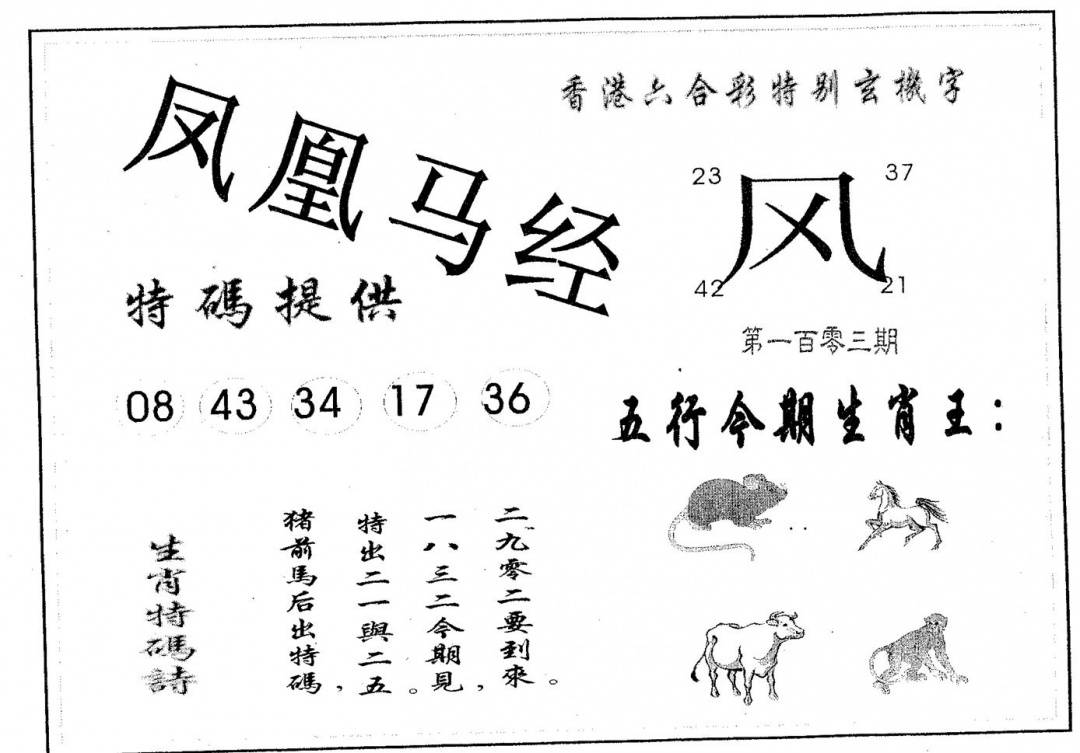 凤凰马经
香港六合彩特别玄機字
23
37
风
42
21
第一百零三期
特碼提供
08 43 34 17 36
五行今期生肖王：
生肖特碼詩
猪前馬后出特碼，
特出二一與二五。
一八三二今期見，
二九零二要到來。